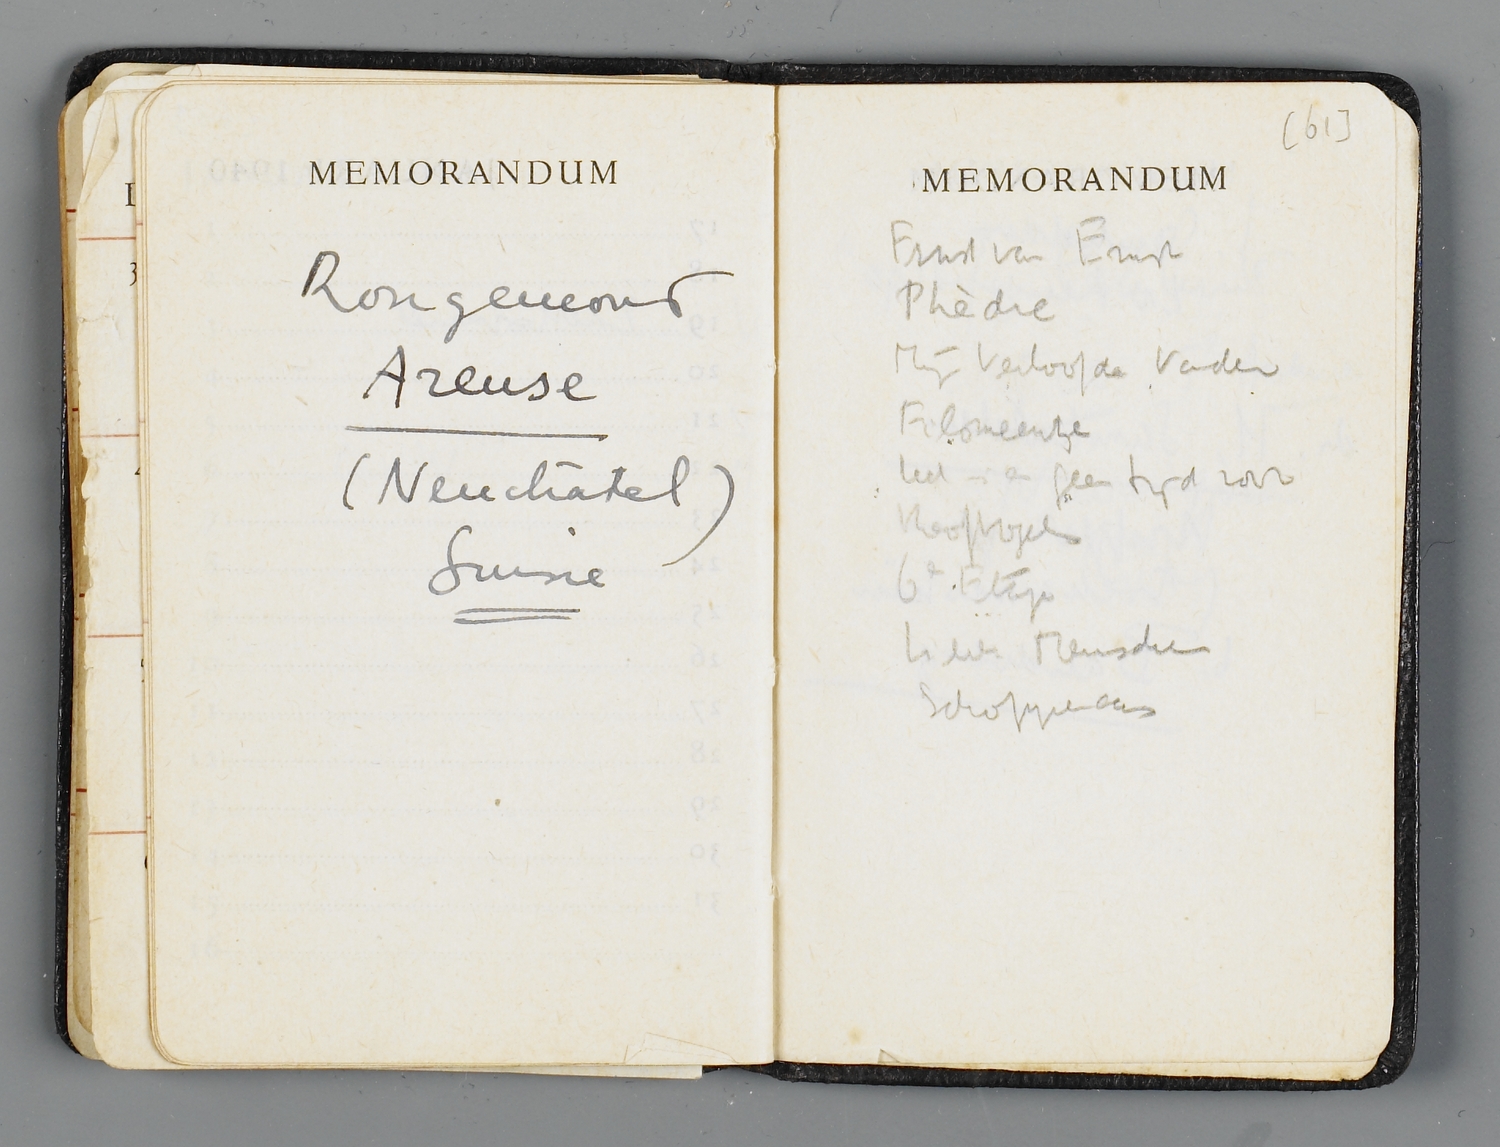 MEMORANDUM
Rougemont
Areuse
(Neuchâtel)
Suisse
[61]
MEMORANDUM
Ernst van Ernst
Phèdre
Mijn Verloofde
Filomeentje
geen tijd voor
Roofvogels
6e Etage
Lieve Menschen
Schoppenaas